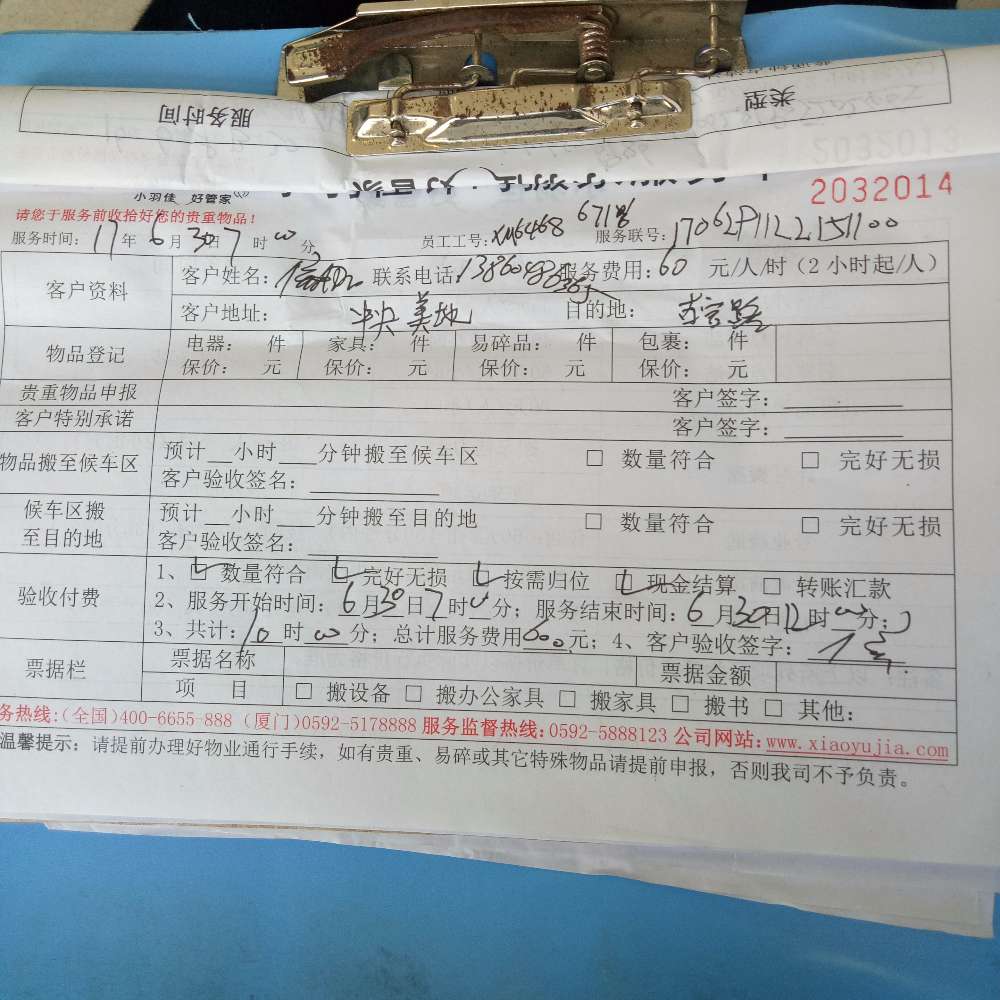 服务时间 类型
2032013
小羽佳 好管家
2032014
请您于服务前收拾好您的贵重物品！
服务时间：17年6月30日7时00分 员工工号：XM6468 671号 服务联号：
客户资料 客户姓名： 联系电话： 服务费用：60 元/人/时（2小时起/人）
客户地址： 中央美地 目的地：
物品登记 电器： 件 家具： 件 易碎品： 件 包裹： 件
保价： 元 保价： 元 保价： 元 保价： 元
贵重物品申报 客户签字：
客户特别承诺 客户签字：
物品搬至候车区 预计__小时___分钟搬至候车区 □ 数量符合 □ 完好无损
客户验收签名：
候车区搬至目的地 预计__小时___分钟搬至目的地 □ 数量符合 □ 完好无损
客户验收签名：
验收付费 1、☑ 数量符合 ☑ 完好无损 ☑ 按需归位 ☑ 现金结算 □ 转账汇款
2、服务开始时间：6月30日7时00分；服务结束时间：6月30日12时00分；
3、共计：10时00分；总计服务费用600元；4、客户验收签字：
票据栏 票据名称 票据金额
项 目 □ 搬设备 □ 搬办公家具 □ 搬家具 □ 搬书 □ 其他：
务热线：(全国)400-6655-888 (厦门)0592-5178888 服务监督热线：0592-5888123 公司网站：www.xiaoyujia.com
温馨提示：请提前办理好物业通行手续，如有贵重、易碎或其它特殊物品请提前申报，否则我司不予负责。